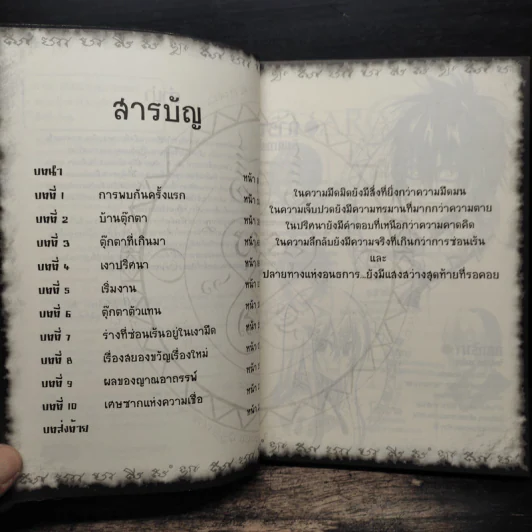 สารบัญ
บทนำ หน้า
บทที่ 1 การพบกันครั้งแรก หน้า
บทที่ 2 บ้านตุ๊กตา หน้า
บทที่ 3 ตุ๊กตาที่เกินมา หน้า
บทที่ 4 เงาปริศนา หน้า
บทที่ 5 เริ่มงาน หน้า
บทที่ 6 ตุ๊กตาตัวแทน หน้า
บทที่ 7 ร่างที่ซ่อนเร้นอยู่ในเงามืด หน้า
บทที่ 8 เรื่องสยองขวัญเรื่องใหม่ หน้า
บทที่ 9 ผลของญาณอาถรรพ์ หน้า
บทที่ 10 เศษซากแห่งความเชื่อ หน้า
บทส่งท้าย
ในความมืดมิดยังมีสิ่งที่ยิ่งกว่าความมืดมน
ในความเจ็บปวดยังมีความทรมานที่มากกว่าความตาย
ในปริศนายังมีคำตอบที่เหนือกว่าความคาดคิด
ในความลึกลับยังมีความจริงที่เกินกว่าการซ่อนเร้น
และ
ปลายทางแห่งอนธการ...ยังมีแสงสว่างสุดท้ายที่รอคอย